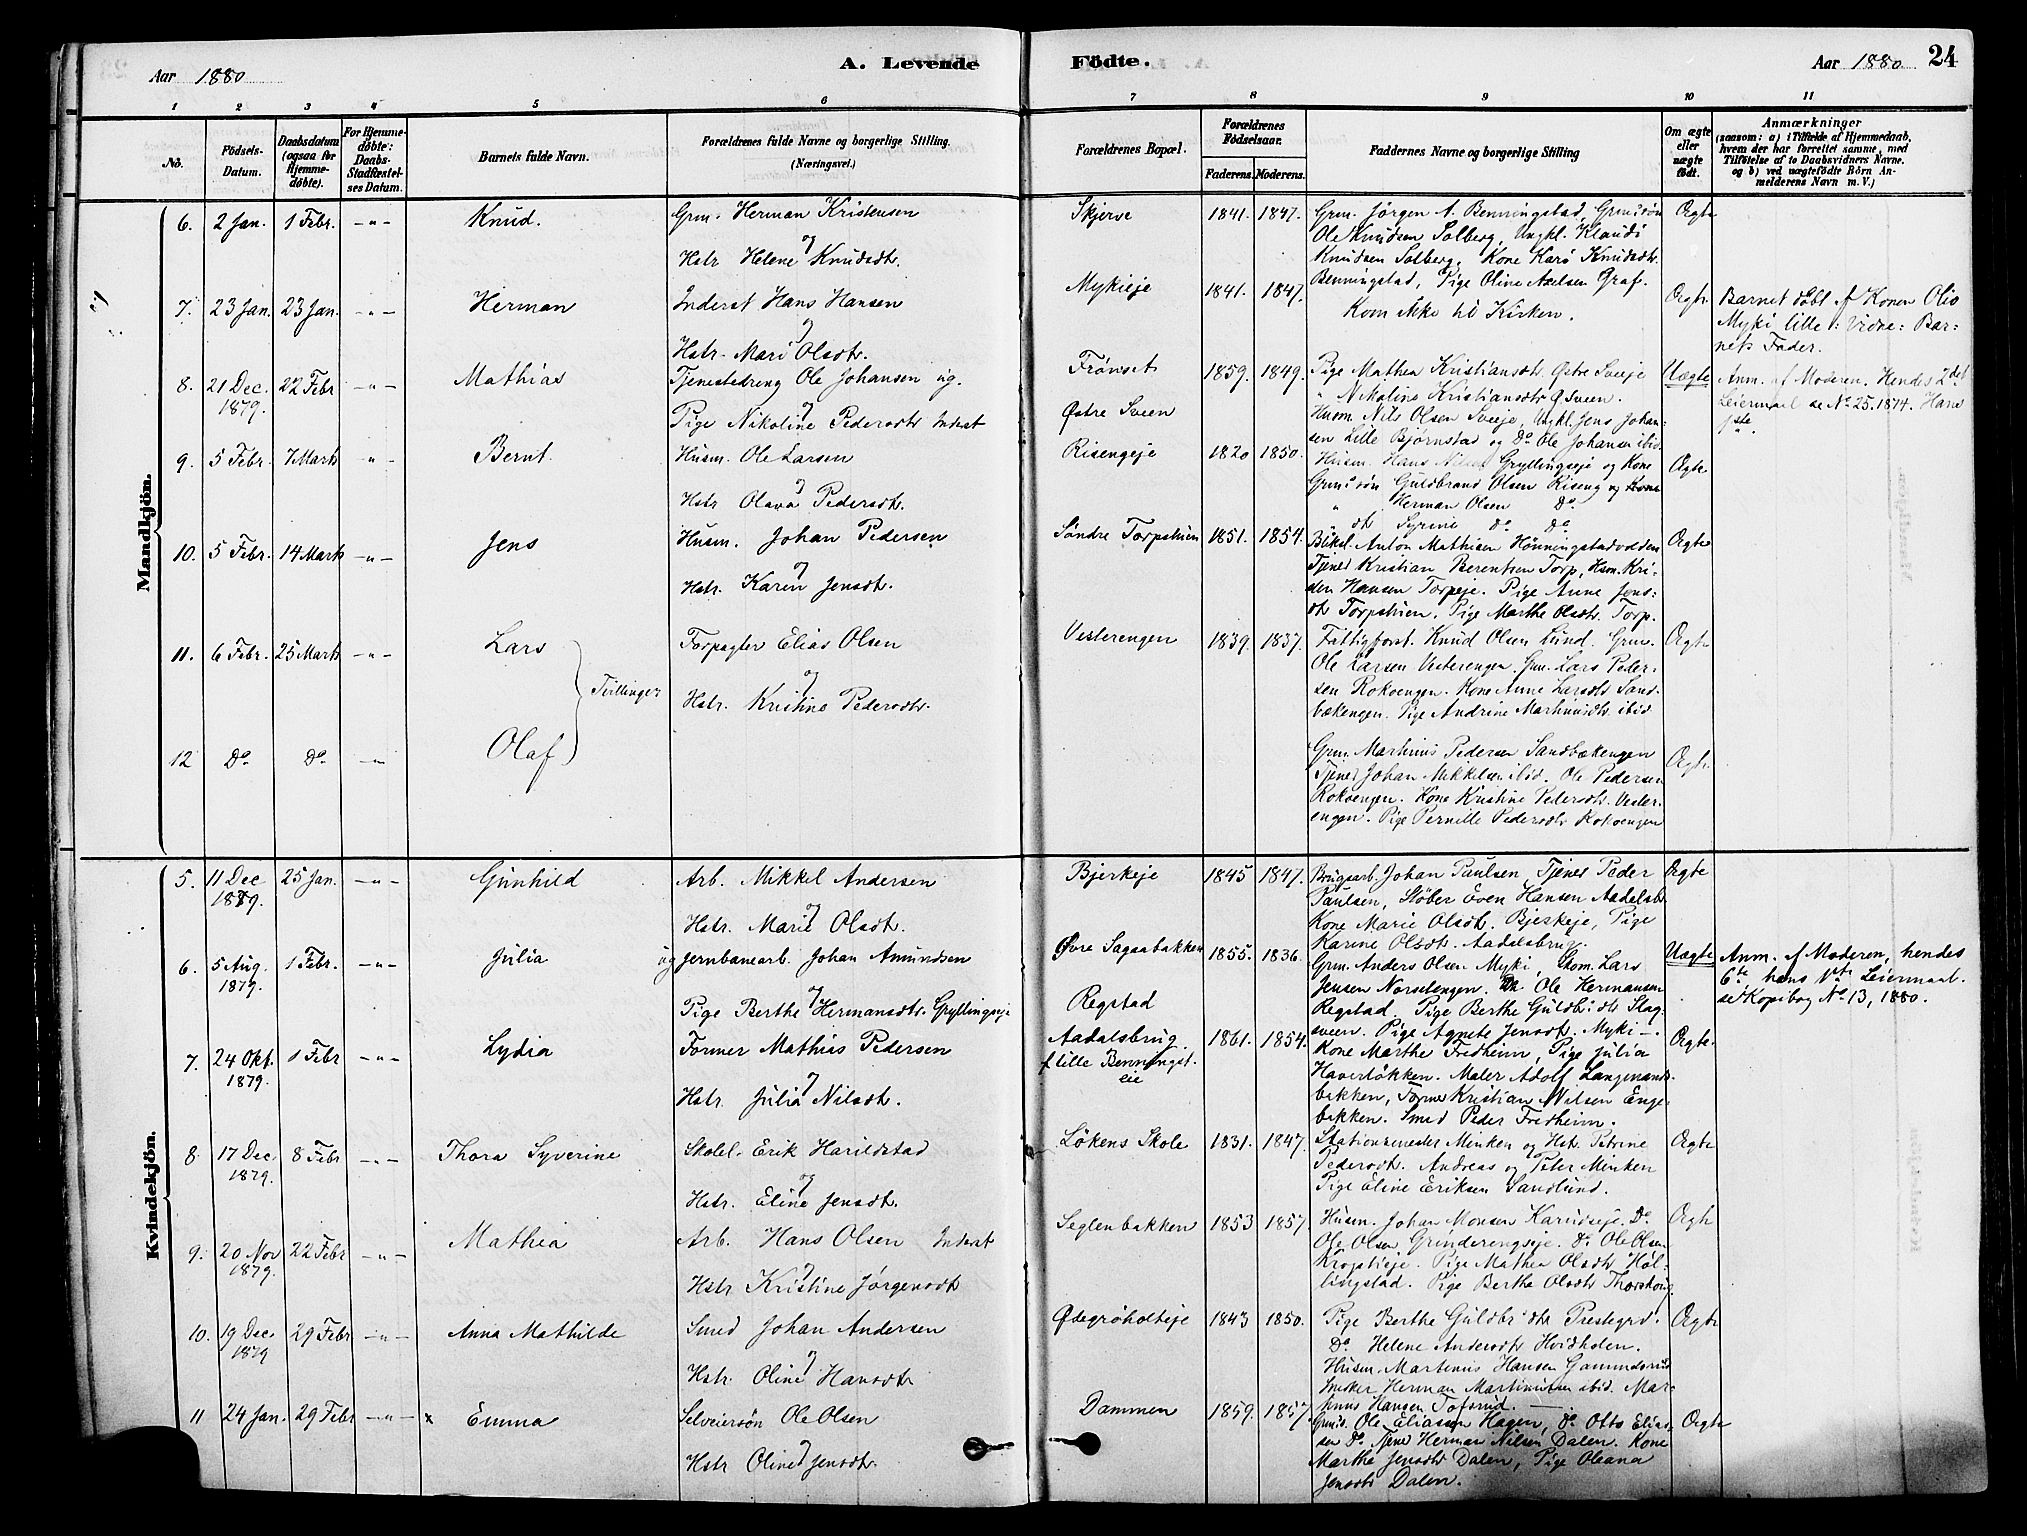 Aar 1880
A. Levende
Födte.
Aar 1880
24
1 2 3 4 5 6 7 8 9 10 11
No.
Födsels-Datum.
Daabsdatum (ogsaa for Hjemmedøbte).
For Hjemmedøbte: Daabs-Stadfæstelses Datum.
Barnets fulde Navn.
Forældrenes fulde Navne og borgerlige Stilling. (Næringsvei.)
Forældrenes Bopæl.
Forældrenes Födselsaar.
Faderens. Moderens.
Faddernes Navne og borgerlige Stilling
Om ægte eller uægte födt.
Anmærkninger
(saasom: a) i Tilfælde af Hjemmedaab, hvem der har forrettet samme, med Tilföielse af to Daabsvidners Navne. og b) ved uægtefödte Börn Anmelderens Navn m. V.)
Mandkjön.
6. 2 Jan. 1 Febr. -"- Knud. Grm. Herman Kristensen
og
Hstr Helene Knudsdtr.
Skjerve 1841. 1847. Grm. Jörgen A. Benningstad, Grms. sön
Ole Knudsen Solberg, Ungkl. Klaudi
Knudsen Solberg, Kone Kari Knudsdtr.
Benningstad, Pige Oline Axelsen Graf.
Ægte
7. 23 Jan. 23 Jan. -"- Herman Inderst Hans Hansen
og
Hstr. Mari Olsdtr.
Mykieje 1841. 1847. Kom ikke til Kirken. Ægte
Barnet döbt af Konen Olia
Myki lille: Vidne: Bar=
nets Fader.
8. 21 Dec. 1879. 22 Febr -"- Mathias Tjenestedreng Ole Johansen ug.
og
Pige Nikoline Pedersdtr Inderst
Frönset
Østre Sveen
1859. 1849. Pige Mathea Kristiansdtr. Østre Sveeje
" Nikoline Kristiansdtr Ø Sveen.
Husm. Nils Olsen Sveeje, Ungkl. Jens Johan=
sen Lille Bjørnstad og Do Ole Johansen ibid.
Uægte
Anm. af Moderen. Hendes 2det
Leiermaal se No 25. 1874. Hans
1ste.
9. 5 Febr. 7 Marts " Bernt. Husm. Ole Larsen
og
Hstr Olava Pedersdtr.
Risengeje 1820 1850. Husm. Hans Nilsen Gryllingseje og Kone
Grms. sön Guldbrand Olsen Riseng og Kone
" " Herman Olsen Do
" dtr Syrine Do Do
Ægte
10. 5 Febr. 14 Marts -"- Jens Husm. Johan Pedersen
og
Hstr. Karen Jensdtr.
Søndre Torpstuen 1851. 1854. Bliksl. Anton Mathisen Hönningstadvolden
Tjener Kristian Berentsen Torp, Hsm. Kri-
sten Hansen Torpeje. Pige Anne Jens:
dtr Torpstuen. Pige Marthe Olsdtr. Torp.
Ægte
11. 6 Febr. 25 Marts -"- Lars
Tvillinger
Forpagter Elias Olsen
og
Hstr. Kristine Pedersdtr.
Vesterengen 1839. 1837. Fattigforst. Knud Olsen Lund. Grm.
Ole Larsen Vesterengen. Grm. Lars Peder-
sen Rokoengen. Kone Anne Larsdtr Sand-
bækengen. Pige Andrine Marthinusdtr. ibid
Ægte
12 Do Do -"- Olaf
Grm. Marthinus Pedersen Sandbækengen
Tjener Johan Mikkelsen ibid. Ole Pedersen
Rokoengen. Kone Kristine Pedersdtr. Vester-
engen. Pige Pernille Pedersdtr Rokoengen
Ægte
Kvindekjön.
5. 11 Dec 1879. 25 Jan. -"- Gunhild Arb. Mikkel Andersen
og
Hstr. Marie Olsdtr.
Bjerkeje 1845 1847. Brugsarb. Johan Paulsen, Tjener Peder
Paulsen, Støber Even Hansen Aadalsbr.
Kone Marie Olsdtr. Bjerkeje, Pige
Karine Olsdtr. Aadalsbrug.
Ægte
6. 5 Aug. 1879. 1 Febr. -"- Julia ug Jernbanearb. Johan Amundsen
og
Pige Berthe Hermansdtr. Gryllingseje
Øvre Sagaabakken
Regstad
1855. 1836. Grm. Anders Olsen Myki, Gkom. Lars
Jensen Norsetengen. Do Ole Hermansen
Regstad. Pige Berthe Guldbr:dtr Slag-
sveen. Pige Agnete Jensdtr. Myki —.
Uægte
Anm. af Moderen, hendes
6te, hans 1ste Leiermaal.
se Kopibog No 13, 1880.
7. 24 Okt. 1879. 1 Febr -"- Lydia Former Mathias Pedersen
og
Hstr. Julia Nilsdtr.
Aadalsbrug
f lille Benningst.
eie
1861. 1854. Kone Marthe Fredheim, Pige Julia
Haverløkken. Maler Adolf Langmands-
bakken, Former Kristian Nilsen Enge-
bakken. Smed Peder Fredheim.
Ægte
8. 17 Dec 1879. 8 Febr -"- Thora Syverine Skolel. Erik Harildstad
og
Hstr. Eline Jensdtr.
Løkens Skole 1831. 1847. Stationsmester Minken og Hstr. Petrine
Pedersdtr. Andreas og Peter Minken
Pige Eline Eriksen Sandlund.
Ægte
9. 20 Nov 1879. 22 Febr -"- Mathea Arb. Hans Olsen Inderst
og
Hstr Kristine Jørgensdtr
Seglenbakken 1853 1857. Husm. Johan Monsen Karudseje. Do
Ole Olsen Grinderengseje. Do Ole Olsen
Krogstieje. Pige Mathea Olsdtr Høl-
lingstad. Pige Berthe Olsdtr Thorskoug
Ægte
10. 19 Dec. 1879 29 Febr -"- Anna Mathilde Smed Johan Andersen
og
Hstr. Oline Hansdtr
Ødegrøholteje 1843 1850. Pige Berthe Guldbr:dtr Prestegrd.
Do Helene Andersdtr Hvidholen.
Husm. Martinus Hansen Gammelsrud
Snedker Herman Martinusen ibid. Mar-
tinus Hansen Tofsrud. —
Ægte
11 24 Jan. 29 Febr -"- x Emma Selveiersön Ole Olsen
og
Hstr Oline Jensdtr.
Dammen 1859. 1857 Grms. Ole Eliassen Hagen, Do Otto Elias-
sen Do. Tjener Herman Nilsen Dalen. Kone
Marthe Jensdtr Dalen, Pige Oleana
Jensdtr Dalen.
Ægte